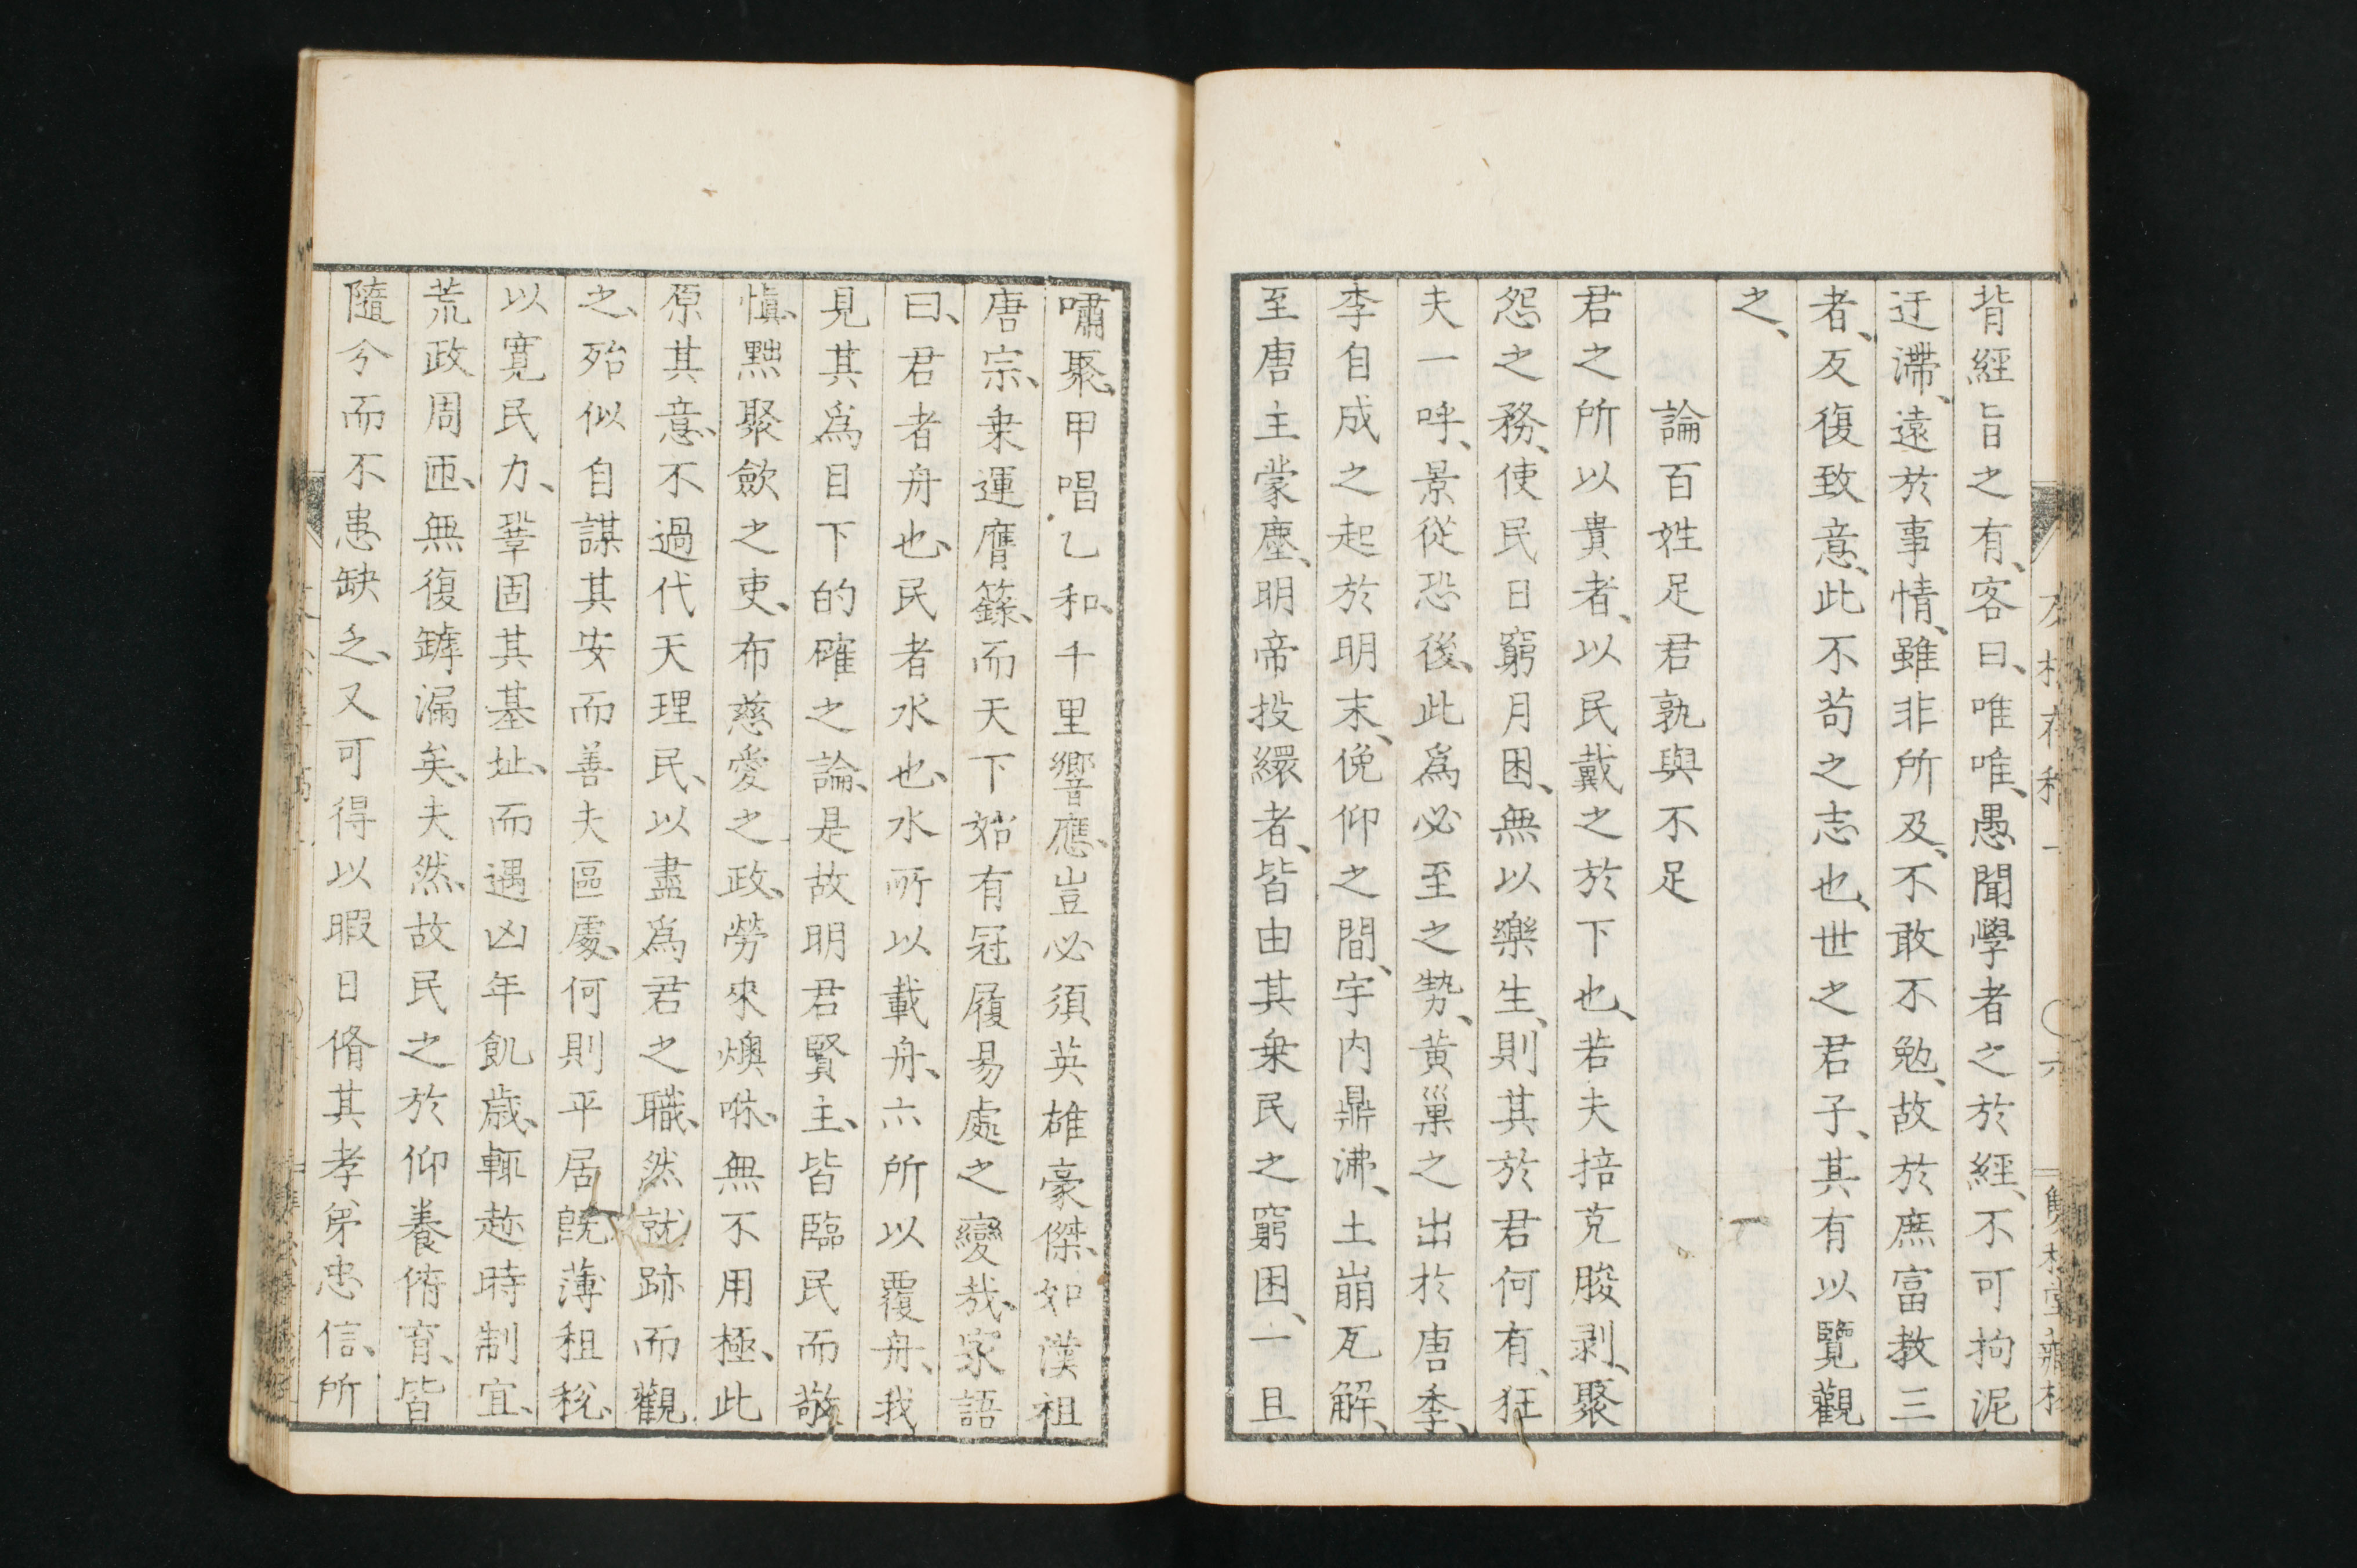 背經旨之有、客曰、唯唯、愚聞學者之於經、不可拘泥
迂滯、遠於事情、雖非所及、不敢不勉、故於庶富教三
者、反復致意、此不苟之志也、世之君子、其有以覽觀
之、
論百姓足君孰與不足
君之所以貴者、以民戴之於下也、若夫掊克朘剥、聚
怨之務、使民日窮月困、無以樂生、則其於君何有、狂
夫一呼、景從恐後、此爲必至之勢、黄巢之出於唐季、
李自成之起於明末、俛仰之間、宇内鼎沸、土崩瓦解、
至唐主蒙塵、明帝投繯者、皆由其乗民之窮困、一旦
嘯聚、甲唱乙和、千里響應、豈必須英雄豪傑、如漢祖
唐宗、乗運膺籙、而天下始有冠履易處之變哉、家語
曰、君者舟也、民者水也、水所以載舟、亦所以覆舟、我
見其爲目下的確之論、是故明君賢主、皆臨民而敬
愼、黜聚歛之吏、布慈愛之政、勞來燠咻、無不用極、此
原其意、不過代天理民、以盡爲君之職、然就跡而觀
之、殆似自謀其安而善夫區處、何則平居既薄租稅、
以寛民力、鞏固其基址、而遇凶年飢歳、輒趂時制宜、
荒政周匝、無復罅漏矣、夫然、故民之於仰養俯育、皆
隨分而不患缺乏、又可得以暇日脩其孝弟忠信、所